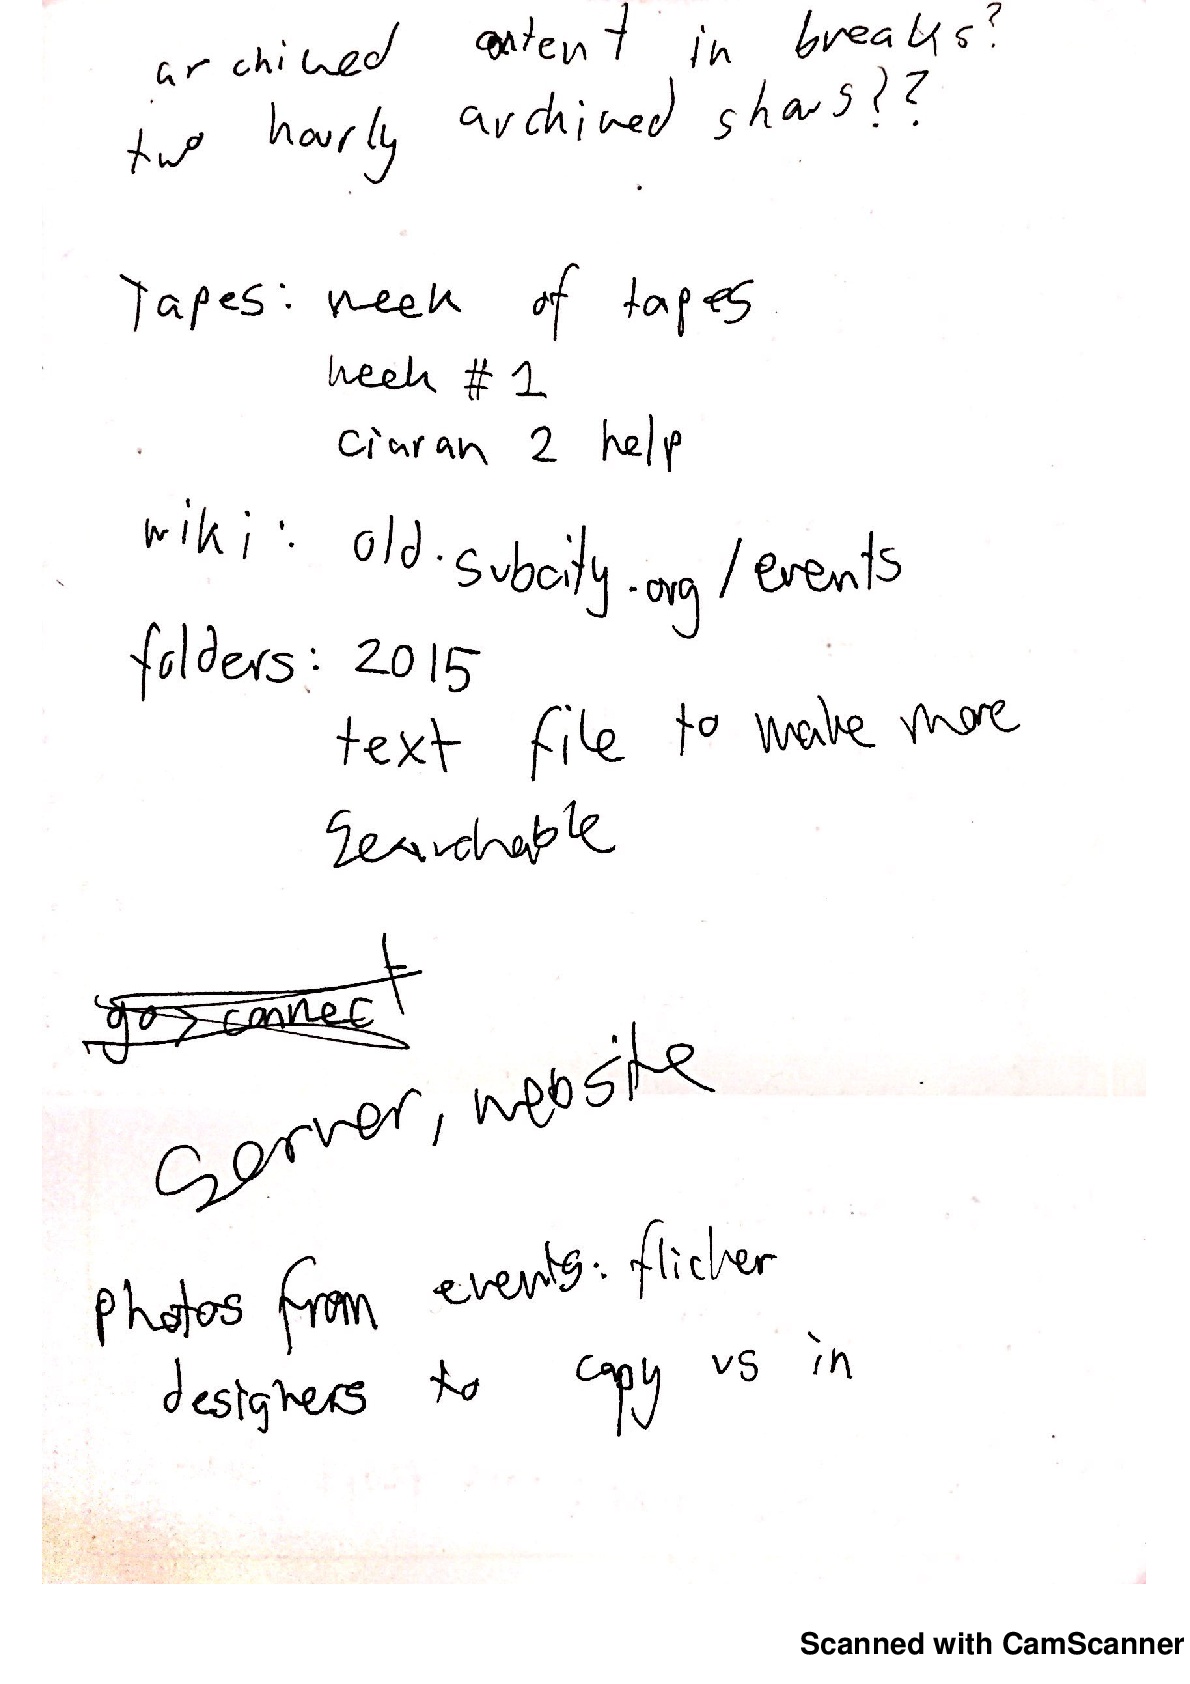 archived content in breaks?
two hourly archived shows??
Tapes: week of tapes
week # 1
ciaran 2 help
wiki: old.subcity.org/events
folders: 2015
text file to make more
searchable
go > connect
Server, website
photos from events: flicker
designers to copy us in
Scanned with CamScanner